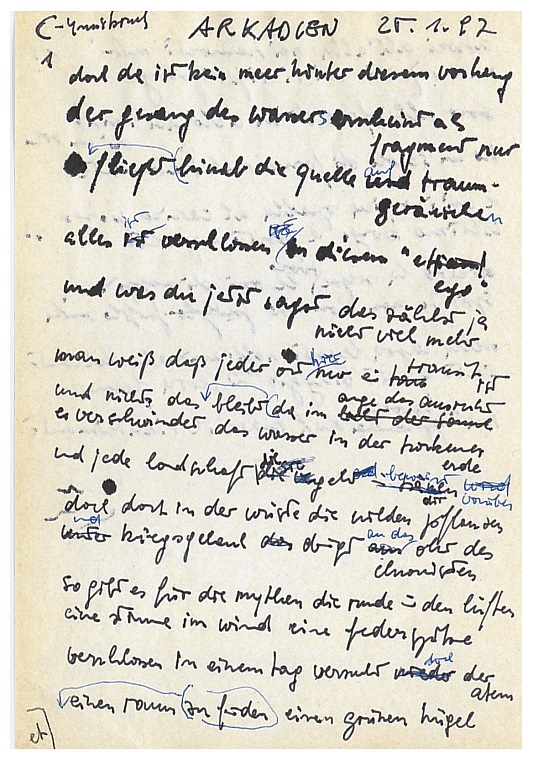 C-Innsbruck ARKADIEN 25.1.92
1
doch da ist kein meer hinter diesem vorhang
der gesang des wassers erscheint als
fragment nur
fließt hinab die quelle auf traum-
geräuschen
alles ist verschlossen in diesem "
ego"
und was du jetzt sagst das zählt ja
nicht viel mehr
man weiß daß jeder ort hier nur ein transit ist
und nichts das bleibt da im auge das ausruht
es verschwindet das wasser in der trockenen
erde
und jede landschaft die
dir vorüber
doch dort in der wüste die wilden pflanzen
und kriegsgeheul dringt an das ohr des
chronisten
so gibt es für die mythen die runde in den lüften
eine stimme im wind eine federspitze
verschlossen in einem tag versucht doch der
atem
einen raum zu finden einen grünen hügel